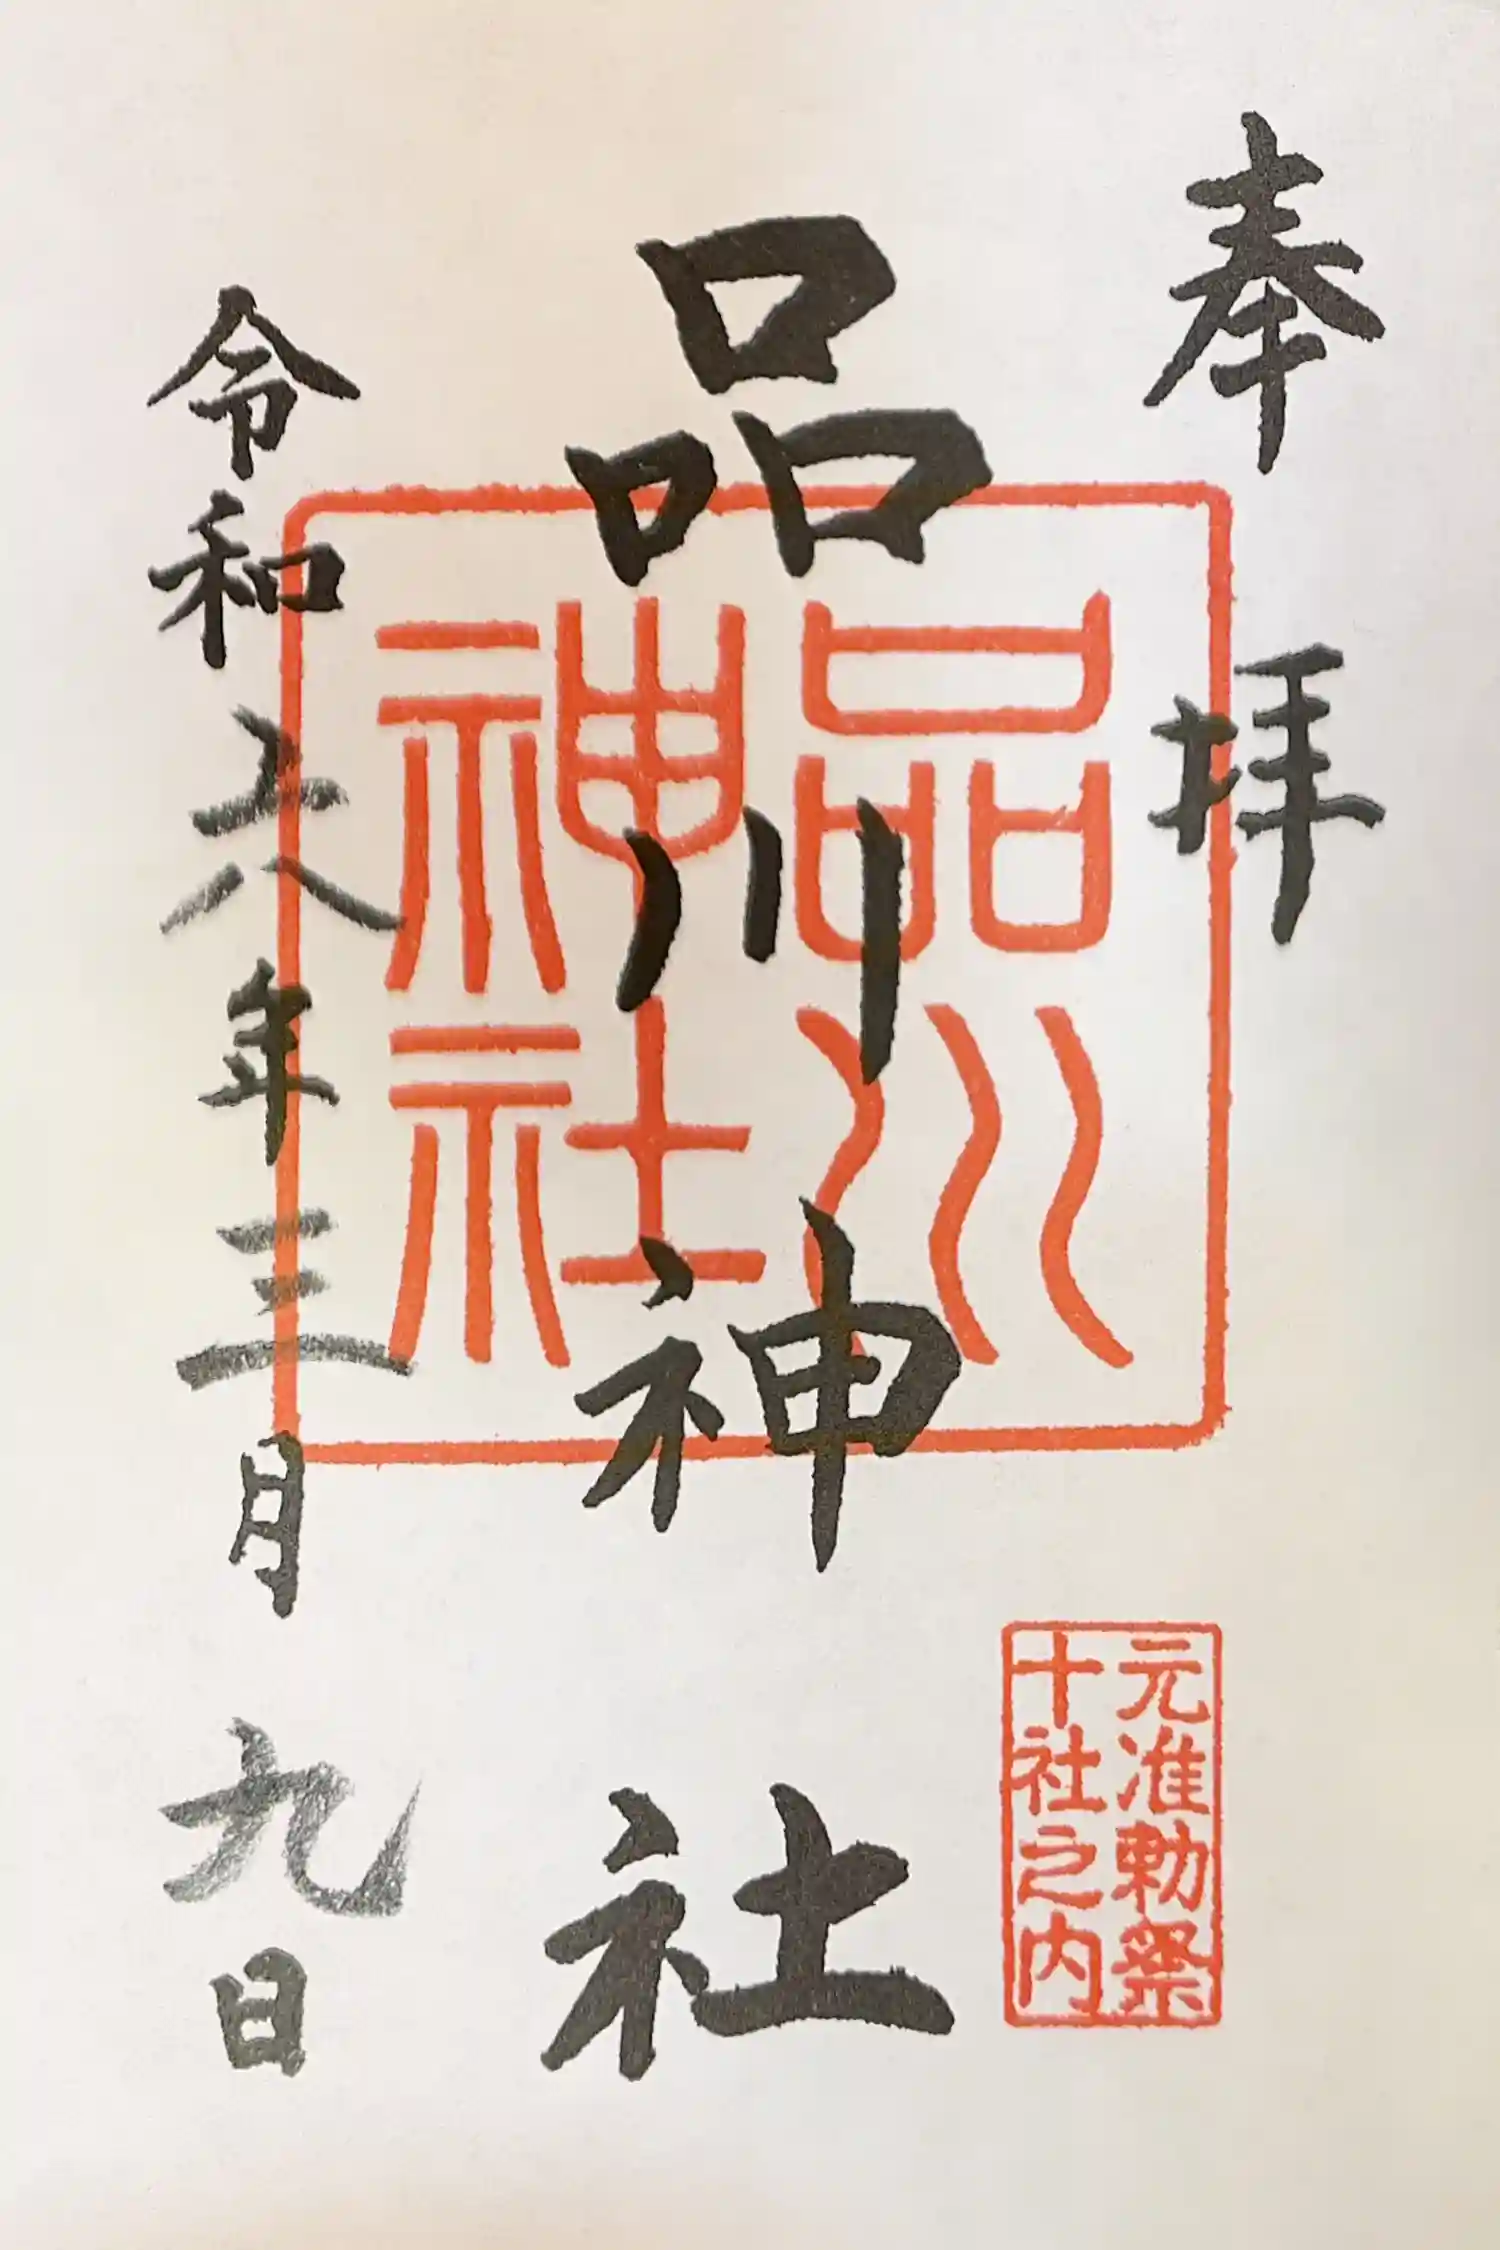 奉拝
品川神社
令和六年三月九日
品川
神社
元准勅祭
十社之内